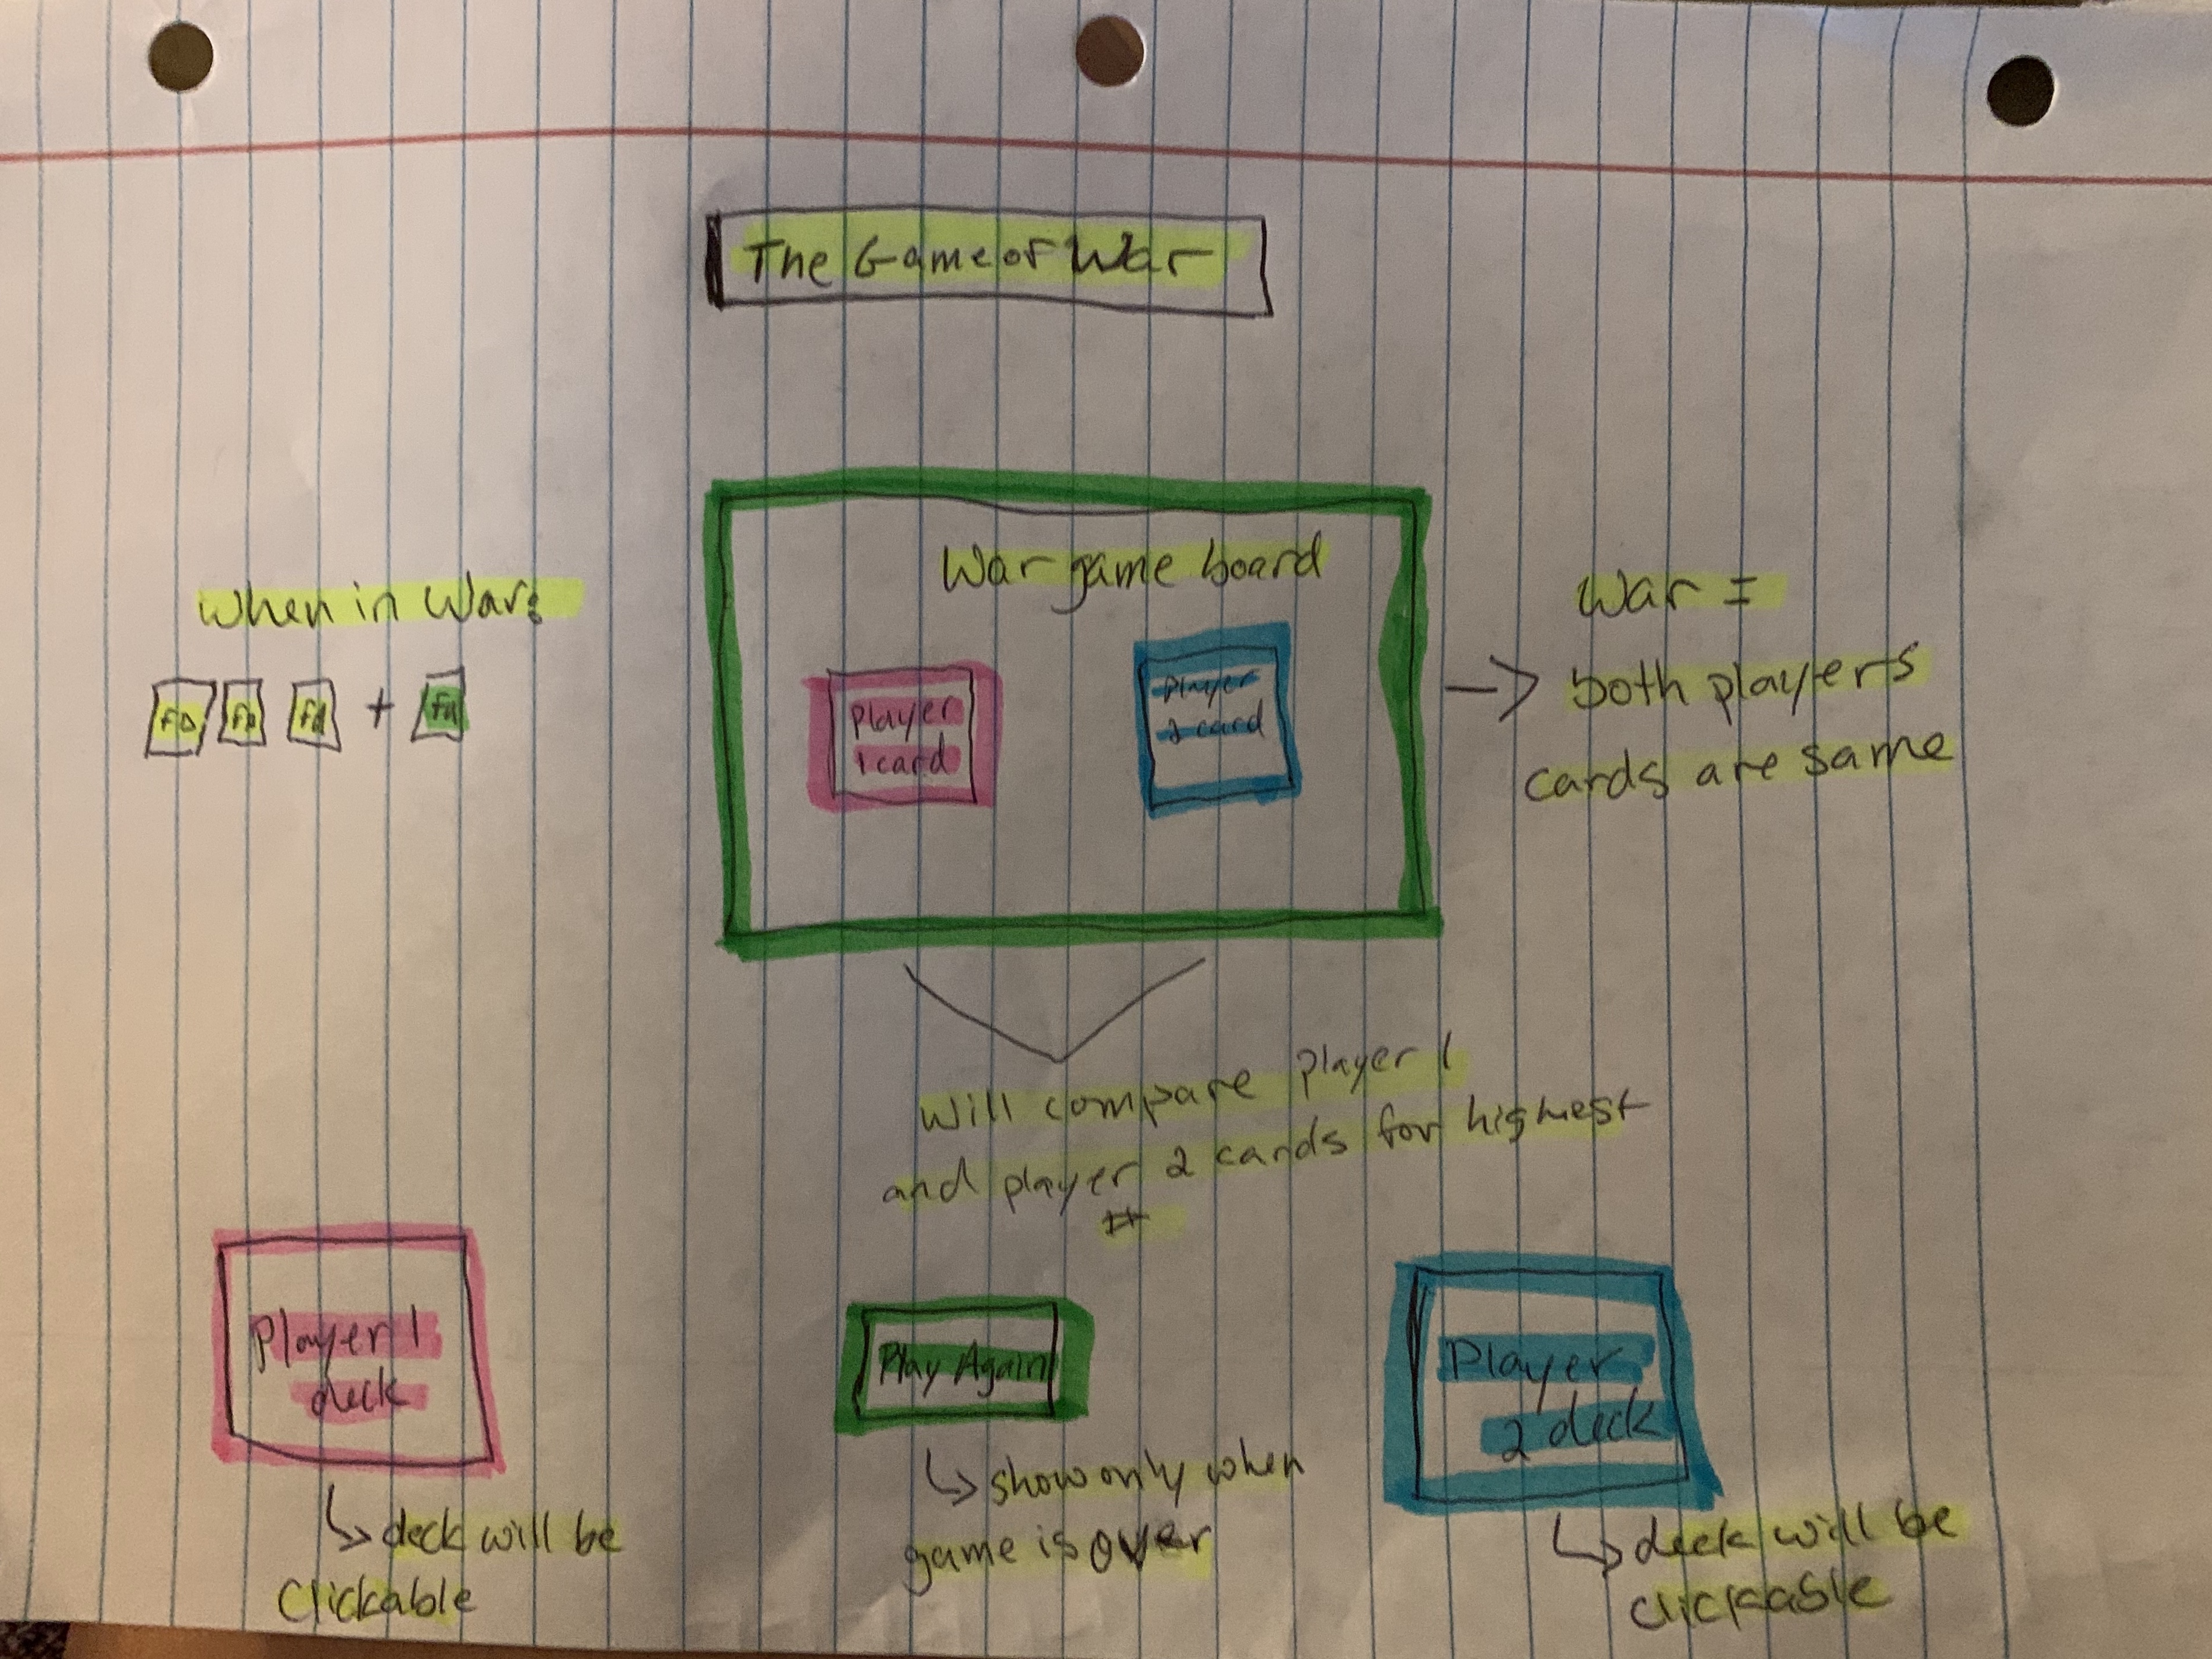 The Game of War
War game board
When in War:
FD FD Fd + Fu
Player
1 card
Player
2 card
War =
both players
cards are same
Will compare Player 1
and player 2 cards for highest
#
Player 1
deck
deck will be
Clickable
Play Again
show only when
game is over
Player
2 deck
deck will be
clickable